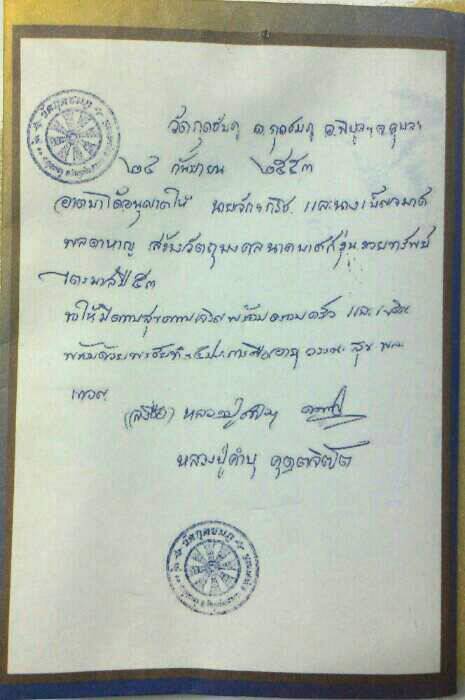 วัดกุดชมภู
วัดกุดชมภู ต.กุดชมภู อ.พิบูลฯ จ.อุบลฯ
๒๔ กันยายน ๒๕๕๓
อาตมาได้อนุญาตให้ นายจักรกริช และนางเบ็ญจมาศ
พลอาหาญ สร้างวัตถุมงคล นาคบาศก์ รุ่นรวยทรัพย์
ไตรมาสปี ๕๓
ขอให้มีความสุขความเจริญ พร้อมครอบครัว และ
พร้อมด้วยพรชัยทั้ง ๔ ประการคือ อายุ วรรณะ สุขะ พละ
เทอญ
(ลงชื่อ) หลวงปู่คำบุ
หลวงปู่คำบุ คุตฺตจิตฺโต
วัดกุดชมภู